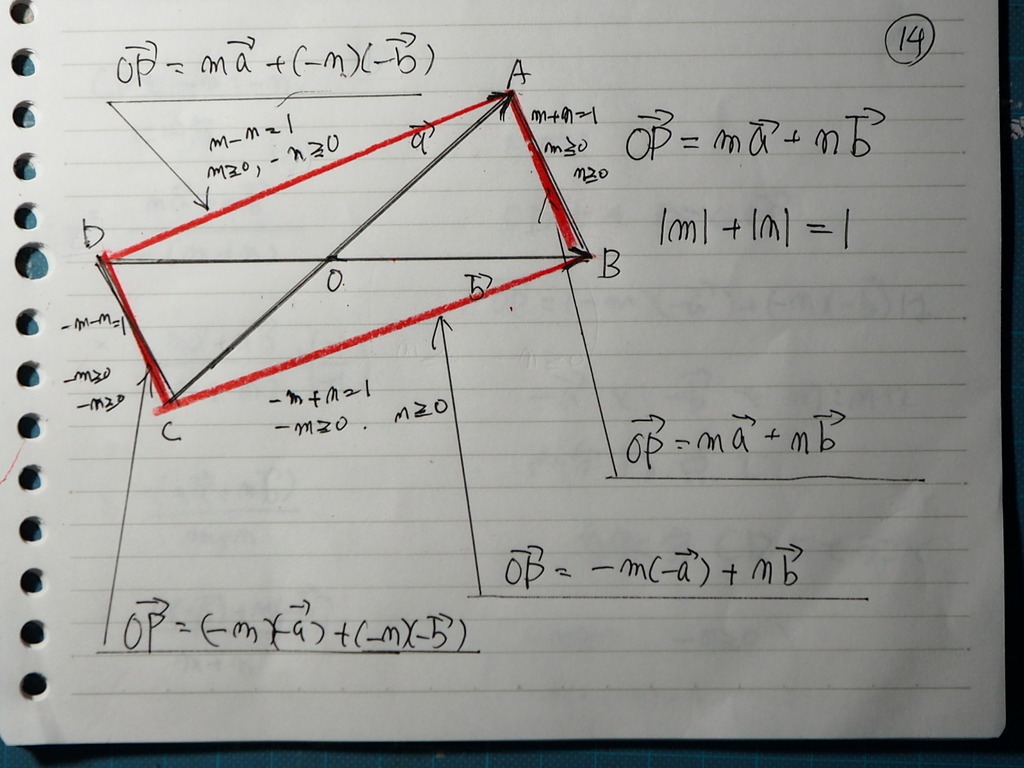 ⑭
OP⃗ = ma⃗ + (-n)(-b⃗)
m-n=1
m≥0, -n≥0
A
a⃗
m+n=1
m≥0
n≥0
OP⃗ = ma⃗ + nb⃗
|m| + |n| = 1
D
O
B
b⃗
-m-n=1
-m≥0
-n≥0
C
-m+n=1
-m≥0. n≥0
OP⃗ = ma⃗ + nb⃗
OP⃗ = -m(-a⃗) + nb⃗
OP⃗ = (-m)(-a⃗) + (-n)(-b⃗)